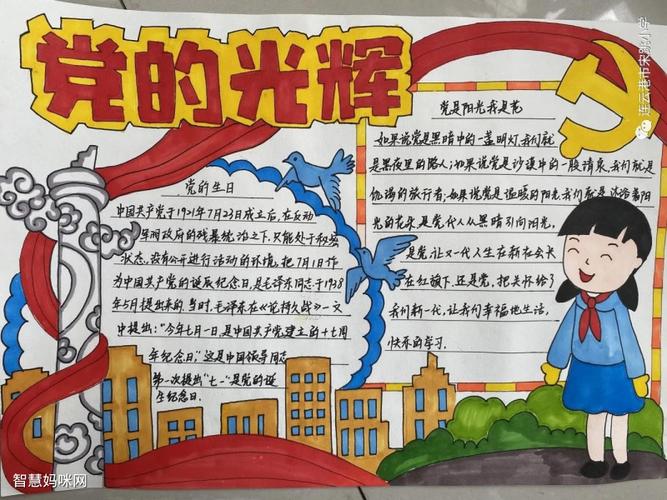 党的光辉
党的生日
中国共产党于1921年7月23日成立后,在反动
军阀政府的残暴统治之下,只能处于秘密
状态,没有公开进行活动的环境,把7月1日作
为中国共产党的诞辰纪念日,是毛泽东同志于1938
年5月提出来的,当时,毛泽东在《论持久战》一文
中提出:“今年七月一日,是中国共产党建立的十七周
年纪念日,”这是中国领导同志
第一次提出“七一”是党的诞
生纪念日.
党是阳光我是花
如果说党是黑暗中的一盏明灯,我们就
是黑夜里的路人;如果说党是沙漠中的一股清泉,我们就是
饥渴的旅行者;如果说党是温暖的阳光,我们就是沐浴着阳
光的花朵.是党代人从黑暗引向阳光,
是党,让一代人生在新在会长
在红旗下,还是党,把关怀给了
我们新一代,让我们幸福地生活,
快乐的学习.
连云港市宋跳小学
智慧妈咪网